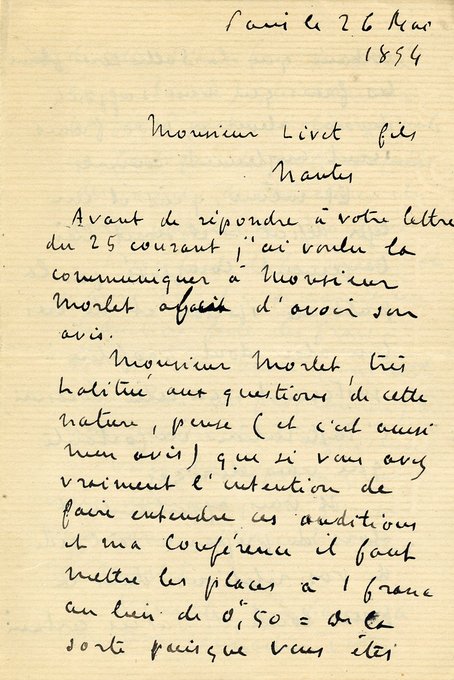 Paris le 26 Mai
1894
Monsieur Livet fils
Nantes
Avant de répondre à votre lettre
du 25 courant, j'ai voulu la
communiquer à Monsieur
Morlet afin d'avoir son
avis.
Monsieur Morlet, très
habitué aux questions de cette
nature, pense (et c'est aussi
mon avis) que si vous avez
vraiment l'intention de
faire entendre ces auditions
et ma Conférence il faut
mettre les places à 1 franc
au lieu de 0f,50 = de la
sorte puisque vous êtes